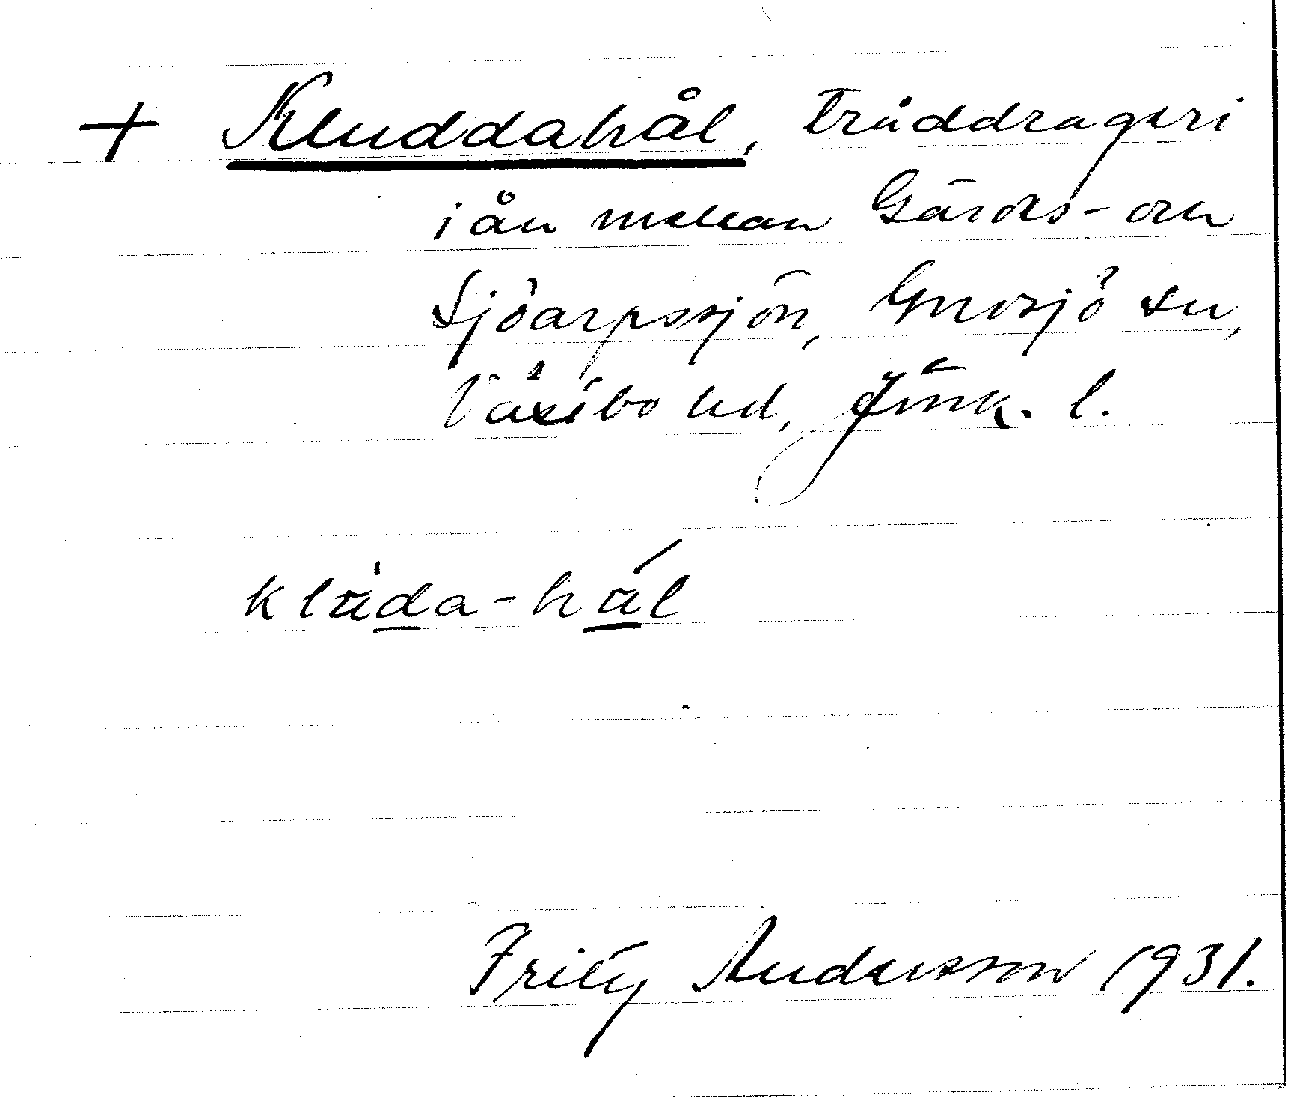 + Kluddahål, Tråddrageri
i ån mellan Gärds- och
Sjöarpssjön, Gnosjö sn,
Västbo hd, Jönk. l.
klúda-hál
Fritz Andersson 1931.